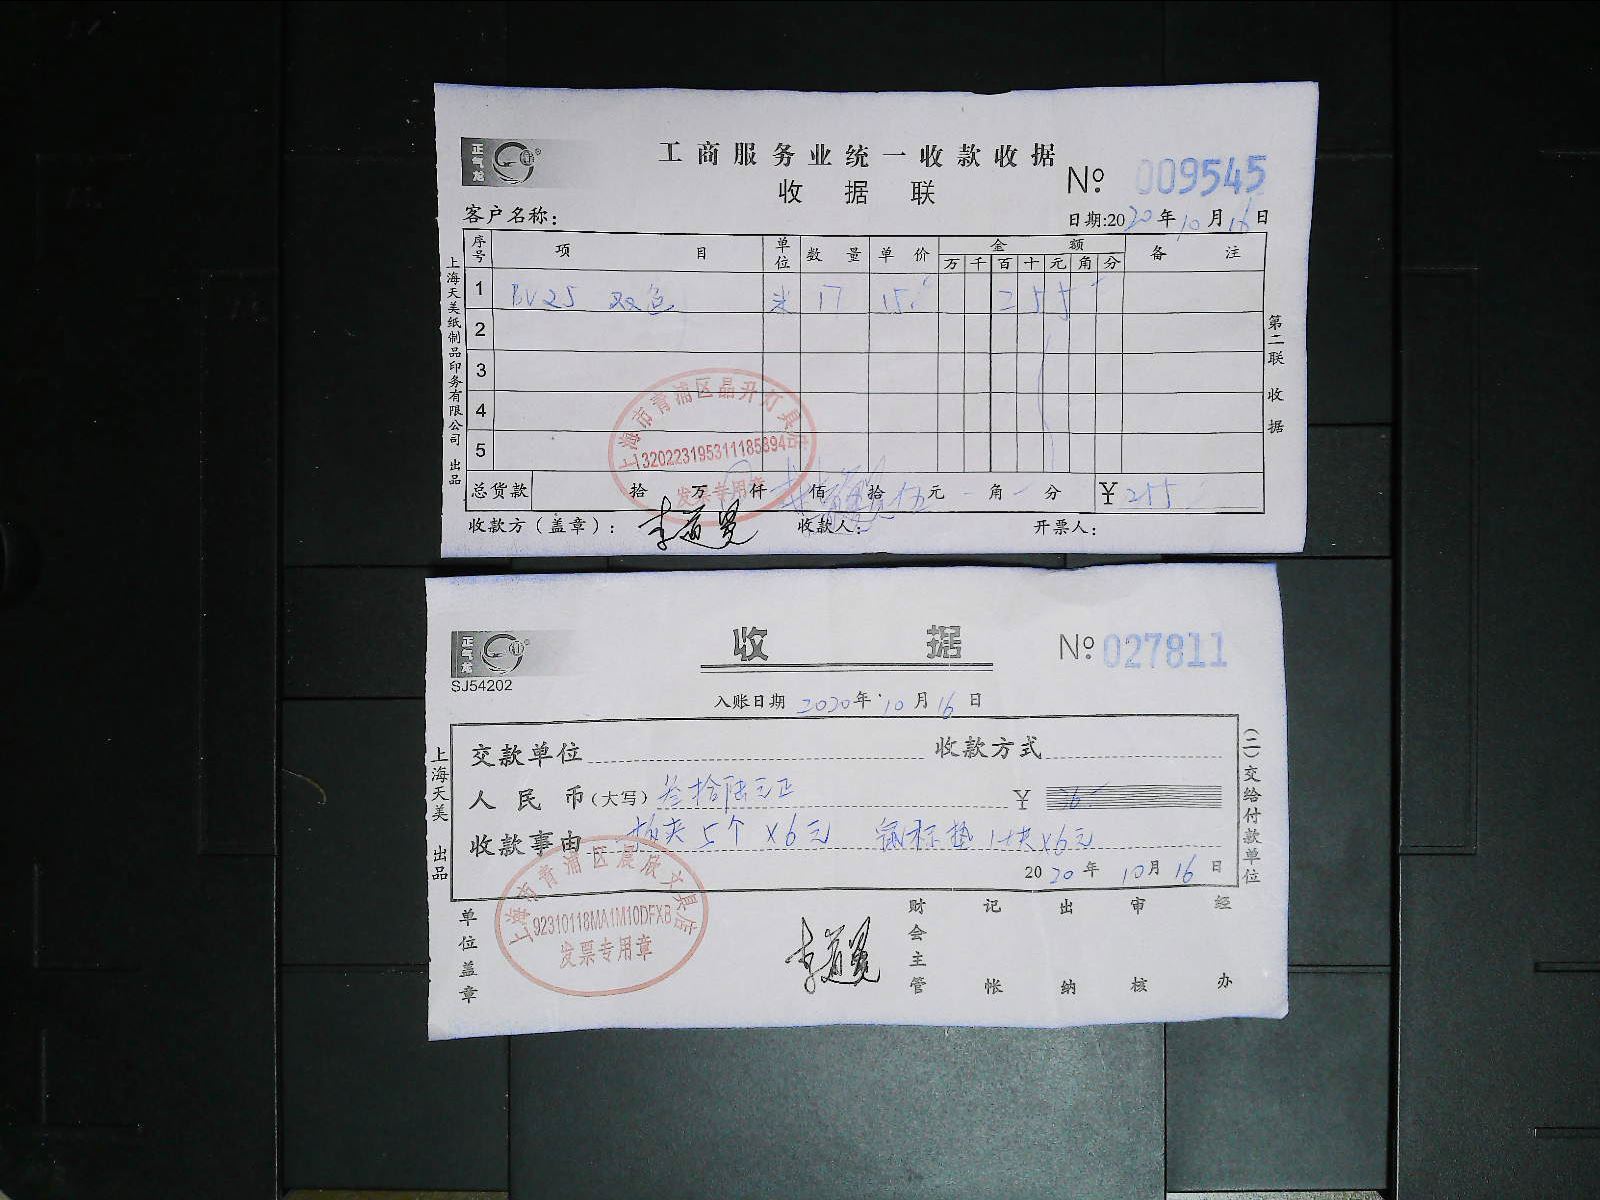 正气龙
工商服务业统一收款收据
收据联
№ 009545
客户名称：
日期:2020年10月16日
序号 项目 单位 数量 单价 金额 备注
万 千 百 十 元 角 分
1 BV25 双色 米 17 15 2 5 5
2
3
4
5
总货款 拾 万 仟 佰 拾 伍 元 角 分 ¥255
收款方（盖章）： 收款人： 开票人：
上海天美纸制品印务有限公司 出品
第二联 收据
上海市青浦区晶升灯具店
发票专用章
正气龙
SJ54202
收据
№ 027811
入账日期 2020年10月16日
交款单位 收款方式
人民币（大写） 叁拾陆元正 ¥ 36
收款事由 5个×6元 鼠标垫 1块×6元
2020年10月16日
上海天美 出品
（二）交给付款单位
单位盖章
上海市青浦区晨欣文具店
92310118MA1M10DFXB
发票专用章
财会主管 记帐 出纳 审核 经办